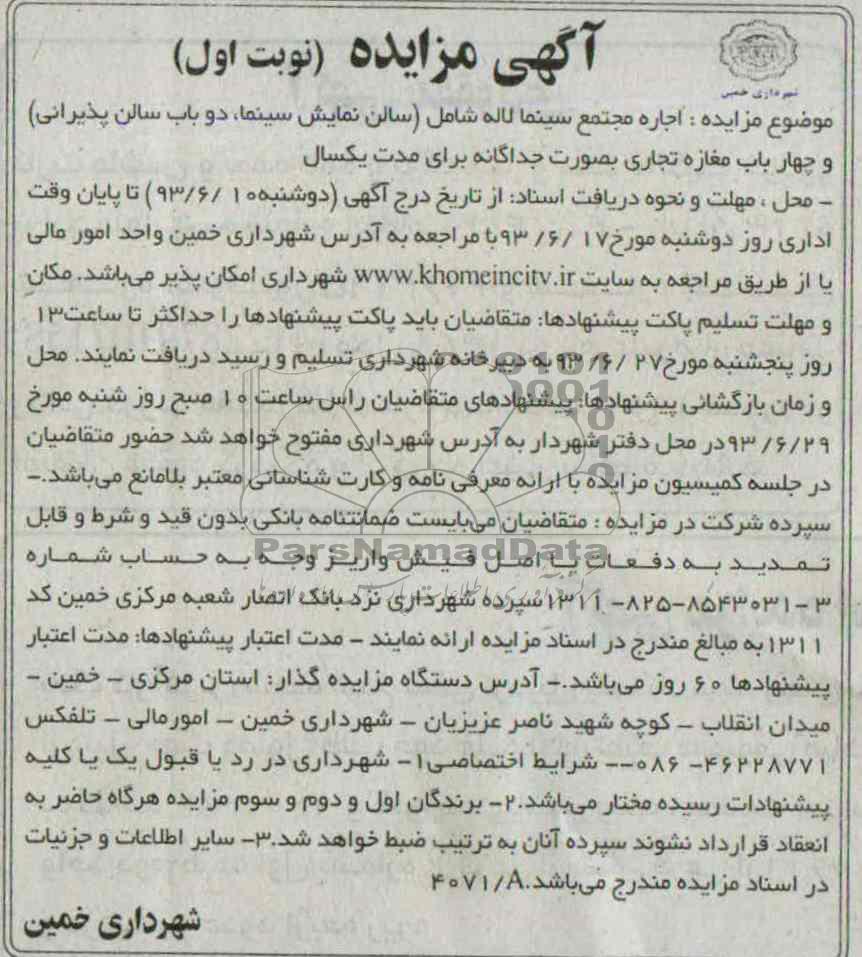 آگهی مزایده (نوبت اول)
شهرداری خمین
موضوع مزایده : اجاره مجتمع سینما لاله شامل (سالن نمایش سینما، دو باب سالن پذیرائی)
و چهار باب مغازه تجاری بصورت جداگانه برای مدت یکسال
- محل ، مهلت و نحوه دریافت اسناد: از تاریخ درج آگهی (دوشنبه ۱۰ /۹۳/۶) تا پایان وقت
اداری روز دوشنبه مورخ ۱۷ /۶/ ۹۳ با مراجعه به آدرس شهرداری خمین واحد امور مالی
یا از طریق مراجعه به سایت www.khomeincitv.ir شهرداری امکان پذیر می‌باشد. مکان
و مهلت تسلیم پاکت پیشنهادها: متقاضیان باید پاکت پیشنهادها را حداکثر تا ساعت ۱۳
روز پنجشنبه مورخ ۲۷ /۶/ ۹۳ به دبیرخانه شهرداری تسلیم و رسید دریافت نمایند. محل
و زمان بازگشائی پیشنهادها: پیشنهادهای متقاضیان راس ساعت ۱۰ صبح روز شنبه مورخ
۹۳/۶/۲۹ در محل دفتر شهردار به آدرس شهرداری مفتوح خواهد شد حضور متقاضیان
در جلسه کمیسیون مزایده با ارائه معرفی نامه و کارت شناسائی معتبر بلامانع می‌باشد.-
سپرده شرکت در مزایده : متقاضیان می‌بایست ضمانتنامه بانکی بدون قید و شرط و قابل
تمدید به دفعات یا اصل فیش واریز وجه به حساب شماره
۳ -۸۵۴۳۰۳۱-۸۲۵- ۱۳۱۱ سپرده شهرداری نزد بانک انصار شعبه مرکزی خمین کد
۱۳۱۱ به مبالغ مندرج در اسناد مزایده ارائه نمایند - مدت اعتبار پیشنهادها: مدت اعتبار
پیشنهادها ۶۰ روز می‌باشد.- آدرس دستگاه مزایده گذار: استان مرکزی - خمین -
میدان انقلاب - کوچه شهید ناصر عزیزیان - شهرداری خمین - امورمالی - تلفکس
۴۶۲۲۸۷۷۱- ۰۸۶-- شرایط اختصاصی ۱- شهرداری در رد یا قبول یک یا کلیه
پیشنهادات رسیده مختار می‌باشد. ۲- برندگان اول و دوم و سوم مزایده هرگاه حاضر به
انعقاد قرارداد نشوند سپرده آنان به ترتیب ضبط خواهد شد. ۳- سایر اطلاعات و جزئیات
در اسناد مزایده مندرج می‌باشد. ۴۰۷۱/A
شهرداری خمین
ParsNamadData